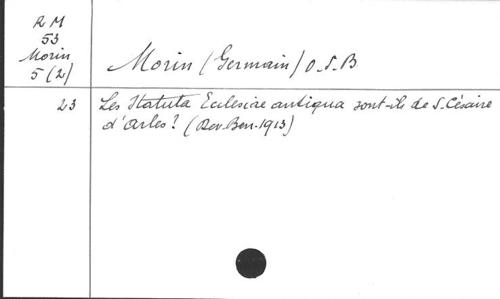 R M
53
Morin
5 (2)
Morin (Germain) O.S.B
23
Les Statuta Ecclesiae antiqua sont-ils de S. Césaire
d'Arles? (Rev. Ben. 1913)